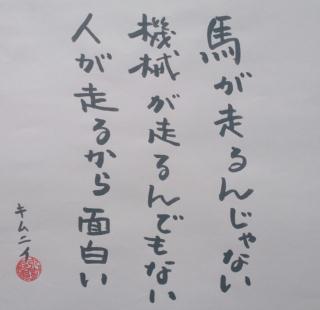 馬が走るんじゃない
機械が走るんでもない
人が走るから面白い
キムニイ